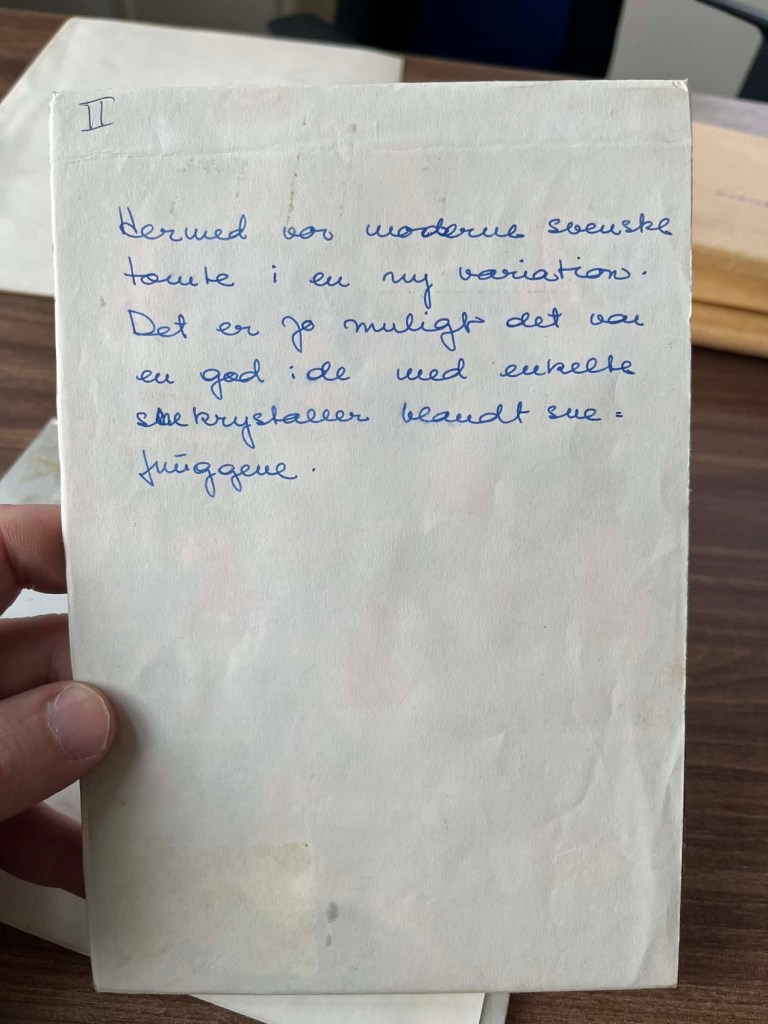 II
Hermed vor moderne svenske
tomte i en ny variation.
Det er jo muligt det var
en god ide med enkelte
snekrystaller blandt sne=
fnŭggene.